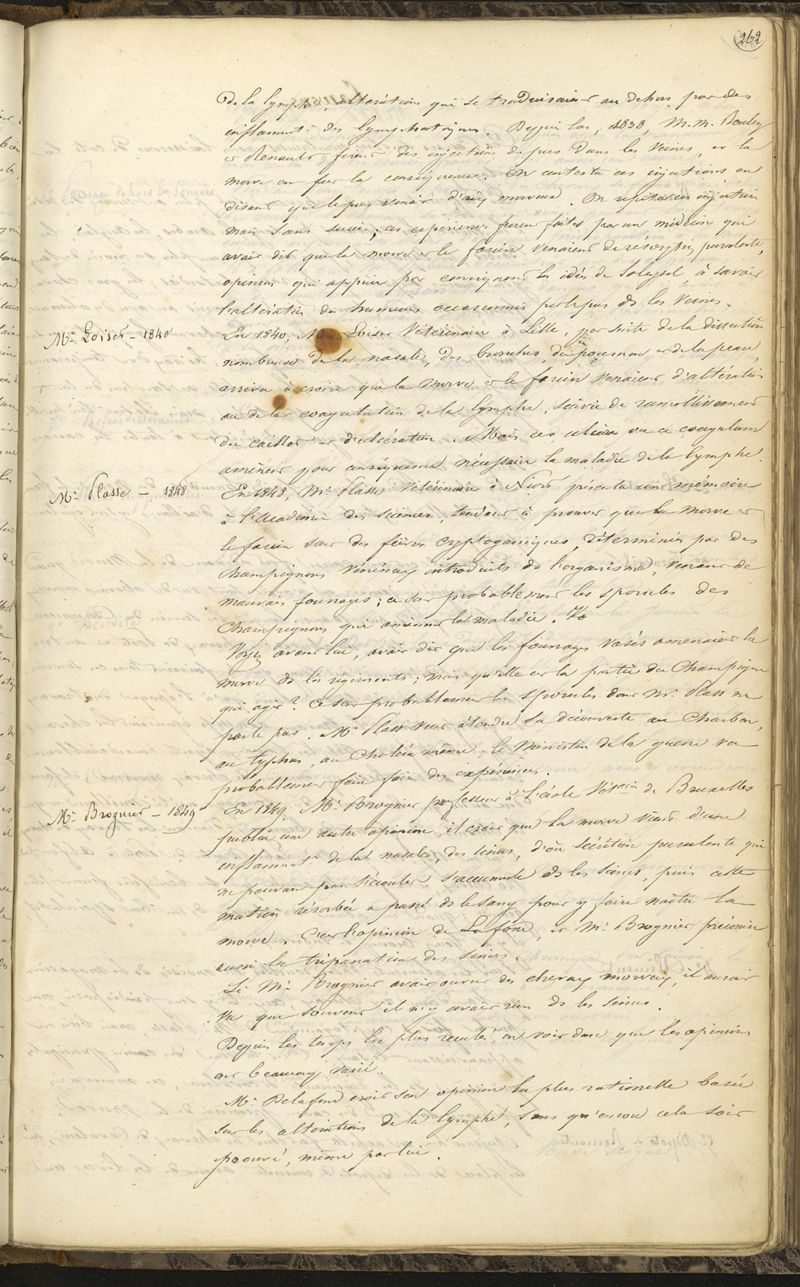 262
de la lymphe, altération qui se traduisaient au dehors par des
inflammat. des lymphatiques. Depuis lui, 1838, M.M. Bouley
et Renault firent des injections de pus dans les veines, et la
morve en fut la conséquence. On contesta ces injections en
disant que le pus venait d'un morveux. On répéta ces injection
mais sans succès; ces expériences furent faites par un médecin qui
avait dit que la morve et le farcin venaient de résorption purulente,
opinion qui appuie par conséquent les idées de Solleysel, à savoir
l'altération des humeurs occasionnée par le pus ds les veines.
Mr. Loiset - 1840
En 1840, Mr. Loiset Vétérinaire à Lille, par suite de la dissection
nombreuse de la nasale, des bronches du poumon et de la peau,
arriva à croire que la morve et le farcin venaient d'altération
ou de la coagulation de la lymphe, suivie de ramollissement
du caillot et d'ulcération. Mais ces ou ce coagulum
amènent pour conséquence nécessaire la maladie de la lymphe.
Mr. Plasse - 1848
En 1848, Mr. Plasse Vétérinaire à Niort présenta un mémoire
à l'académie des sciences, tendant à prouver que la morve et
le farcin sont des fièvres cryptogamiques, déterminés par des
champignons vénéneux introduits ds l'organisme, venant de
mauvais fourrages; ce sont probablement les sporules des
champignons qui amènent la maladie.
avant lui, avait dit que les fourrages vasés amenaient la
morve ds les régiments; mais qu'elle est la partie du champignon
qui agit? Ce sont probablement les sporules dont Mr. Plasse ne
parle pas. Mr. Plasse veut étendre sa découverte au Charbon,
au typhus, au Choléra même; le Ministre de la guerre va
probablement faire faire des expériences.
Mr. Brognier - 1849
En 1849, Mr. Brognier professeur à l'école Vétérin. de Bruxelles
publia une autre opinion, il croit que la morve vient d'une
inflammat. de la nasale, des sinus, d'où sécrétion purulente qui
ne pouvant pas s'écouler s'accumule ds les sinus, puis cette
matière résorbée a passé ds le sang pour y faire naître la
morve. C'est l'opinion de Lafosse, et Mr. Brognier préconise
aussi la trépanation des sinus.
Si Mr. Brognier avait ouvert des chevaux morveux, il aurait
vu que souvent il n'y avait rien ds les sinus.
Depuis les temps les plus reculés, on voit donc que les opinions
ont beaucoup varié.
Mr. Delafond croit son opinion la plus rationnelle basée
sur les altérations de la lymphe, sans qu'encore cela soit
prouvé, même par lui.